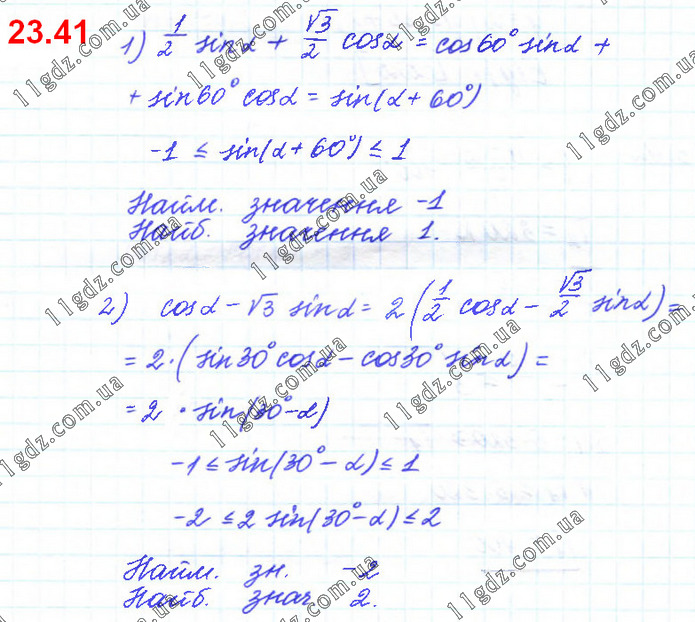 23.41
1) 1/2 sinα + √3/2 cosα = cos60° sinα +
+ sin60° cosα = sin(α + 60°)
-1 ≤ sin(α + 60°) ≤ 1
Найм. значення -1
Найб. значення 1.
2) cosα - √3 sinα = 2(1/2 cosα - √3/2 sinα) =
= 2·(sin30° cosα - cos30° sinα) =
= 2 · sin(30° - α)
-1 ≤ sin(30° - α) ≤ 1
-2 ≤ 2 sin(30° - α) ≤ 2
Найм. зн. -2
Найб. знач 2.
11gdz.com.ua
11gdz.com.ua
11gdz.com.ua
11gdz.com.ua
11gdz.com.ua
11gdz.com.ua
11gdz.com.ua
11gdz.com.ua
11gdz.com.ua
11gdz.com.ua